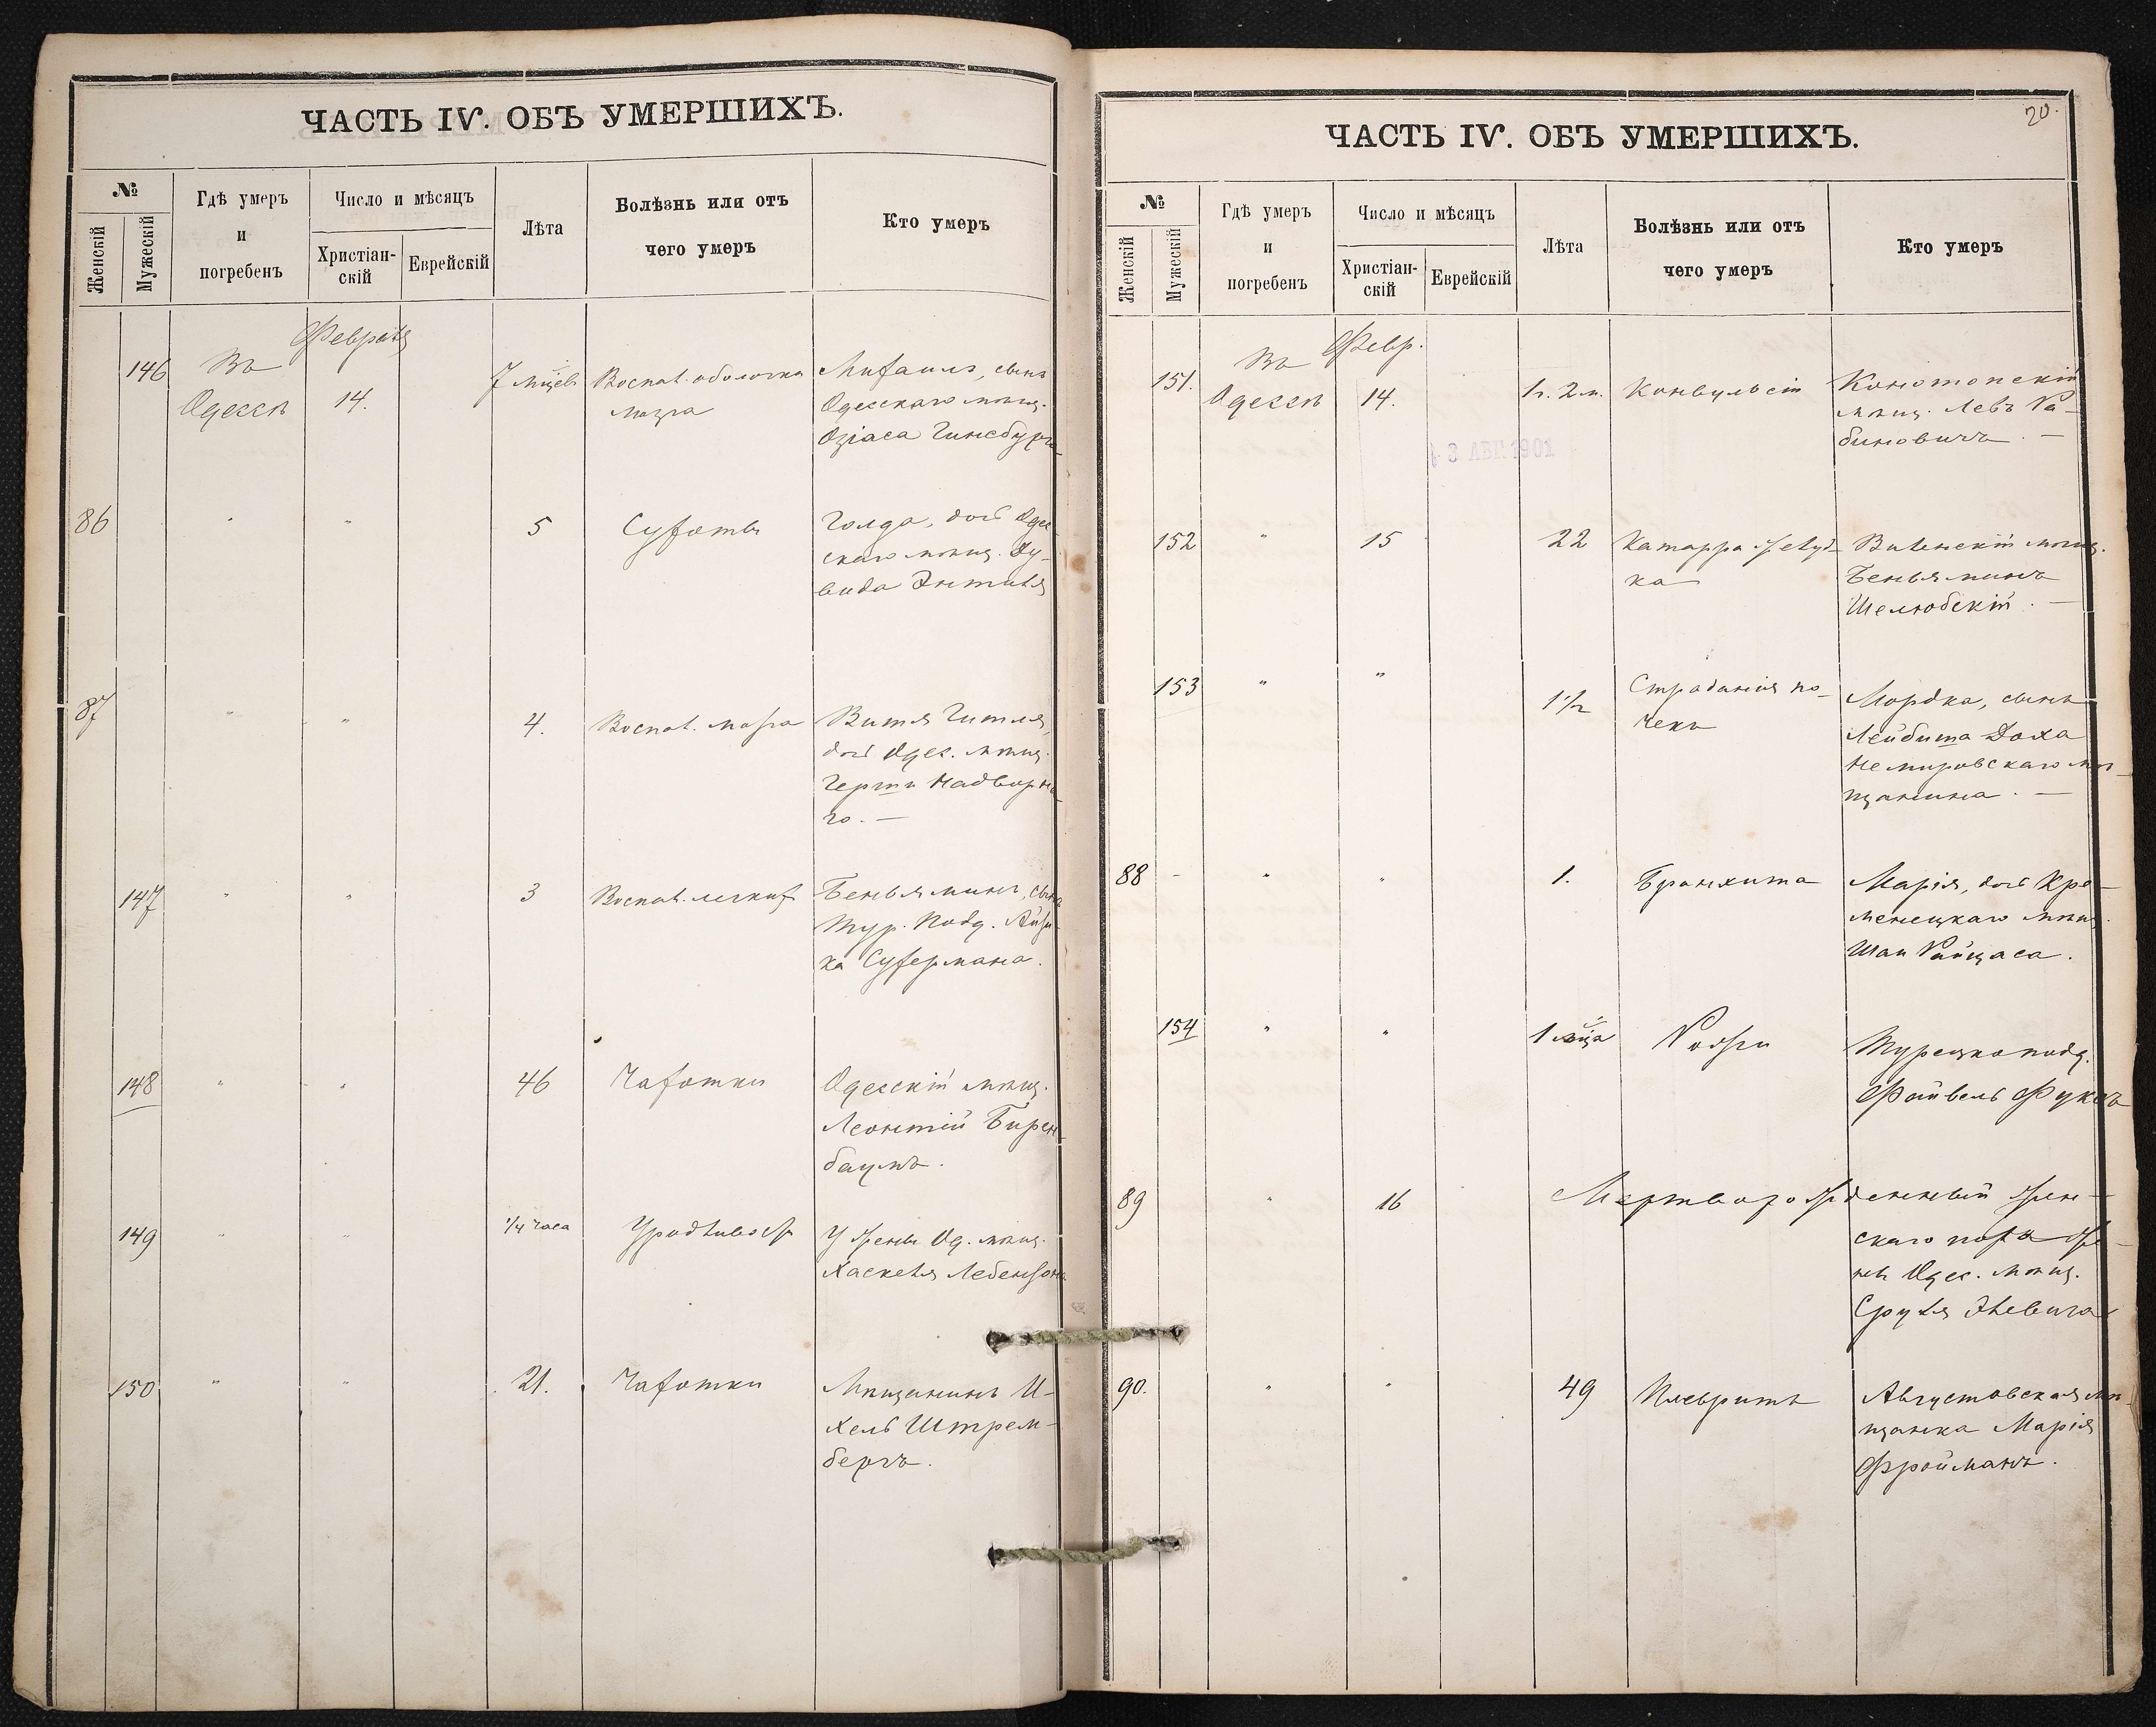 ЧАСТЬ IV. ОБЪ УМЕРШИХЪ.
№
Женскій
Мужескій
Гдѣ умеръ
и
погребенъ
Число и мѣсяцъ
Христіан-
скій
Еврейскій
Лѣта
Болѣзнь или отъ
чего умеръ
Кто умеръ
Февраля
146 Въ 14. 7 мцевъ Воспал. оболочки Михаилъ, сынъ
Одессѣ мозга Одесскаго мѣщ.
Озіаса Гинсбурга
86 " " 5 Сухоты Голда, дочь Одес-
скаго мѣщ.
вида Энтиля
87 " " 4. Воспал. мозга Витя Гитля,
дочь Одес. мѣщ.
Герша Надворна-
го. —
147 " " 3 Воспал. легкихъ Беньяминъ, сынъ
Тур. Подд. Айзи-
ка Сухермана.
148 " " 46 Чахотки Одесскій мѣщ.
Леонтій Бирен-
баумъ.
149 " " 1/4 часа Уродливость У жены Од. мѣщ.
Хаскеля Лебензона
150 " " 21. Чахотки Мѣщанинъ И-
хель Штрем-
бергъ.
20.
ЧАСТЬ IV. ОБЪ УМЕРШИХЪ.
№
Женскій
Мужескій
Гдѣ умеръ
и
погребенъ
Число и мѣсяцъ
Христіан-
скій
Еврейскій
Лѣта
Болѣзнь или отъ
чего умеръ
Кто умеръ
Февр.
151. Въ 14. 1 г. 2 м. Конвульсій Конотопскій
Одессѣ мѣщ. Левъ Ра-
биновичъ. —
3 АВГ. 1901
152 " 15 22 Катарра желуд- Виленскій мѣщ.
ка Беньяминъ
Шелюбскій. —
153 " " 1 1/2 Страданія по- Мордка, сынъ
чекъ Лейбиша Доха
Немировскаго мѣ-
щанина. —
88 - " " 1. Бронхита Марія, дочь Кре-
менецкаго мѣщ.
Шаи Райцаса.
154 " " 1 мца Рожи Турецкоподд.
Файвель Фуксъ
89 " 16 Мертворожденный жен-
скаго пола же-
ны Одес. мѣщ.
Сруля Элевича
90. " " 49 Плевритъ Августовская мѣ-
щанка Марія
Фройманъ.